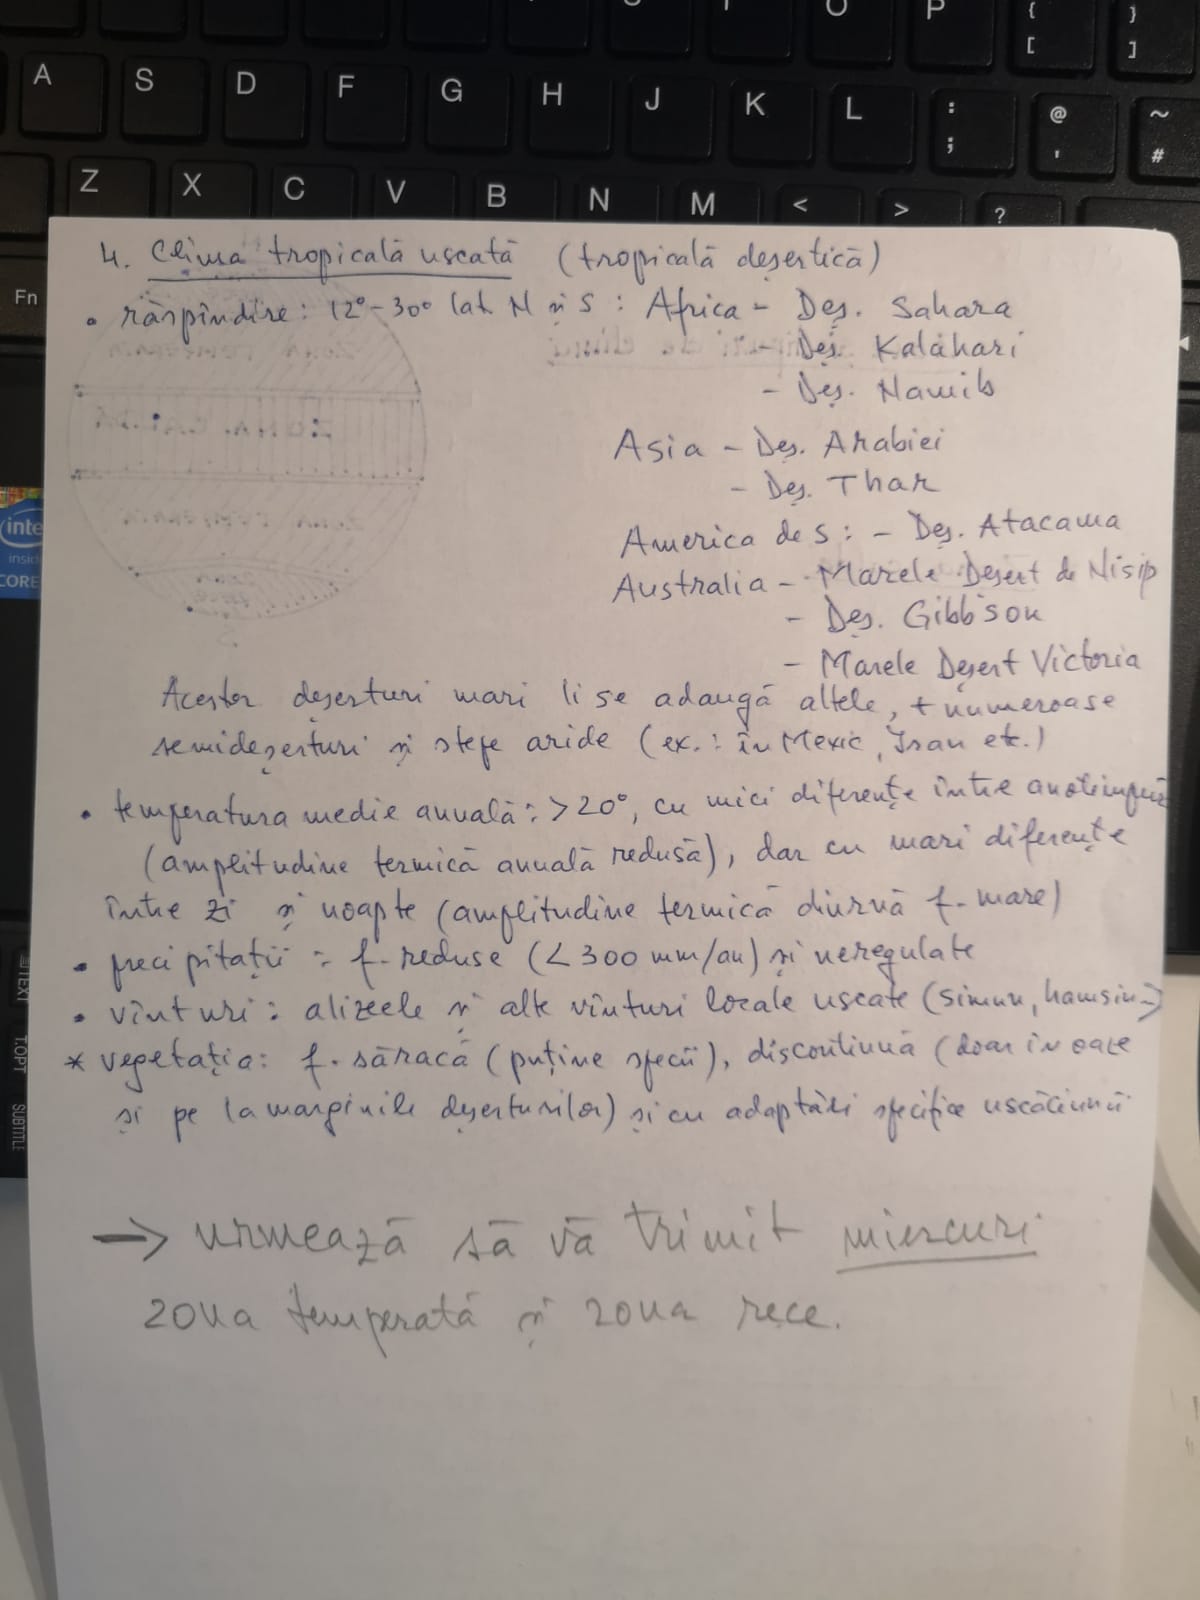 O P { }
[ ]
A S D F G H J K L : ; @ ' ~ #
Z X C V B N M < > ?
Fn
4. Clima tropicală uscată (tropicală deșertică)
• răspîndire: 12°-30° lat. N și S : Africa - Deș. Sahara
- Deș. Kalahari
- Deș. Namib
Asia - Deș. Arabiei
- Deș. Thar
America de S : - Deș. Atacama
Australia - Marele Deșert de Nisip
- Deș. Gibbson
- Marele Deșert Victoria
Acestor deșerturi mari li se adaugă altele, + numeroase
semideșerturi și stepe aride (ex.: în Mexic, Iran etc.)
• temperatura medie anuală: >20°, cu mici diferențe între anotimpuri
(amplitudine termică anuală redusă), dar cu mari diferențe
între zi și noapte (amplitudine termică diurnă f. mare)
• precipitații : f. reduse (<300 mm/an) și neregulate
• vînturi: alizeele și alte vînturi locale uscate (simun, hamsin-)
* vegetația: f. săracă (puține specii), discontinuă (doar în oaze
și pe la marginile deșerturilor) și cu adaptări specifice uscăciunii
→ urmează să vă trimit miercuri
zona temperată și zona rece.
inte
insid
CORE
TEXT
T.OPT
SUBTITLE